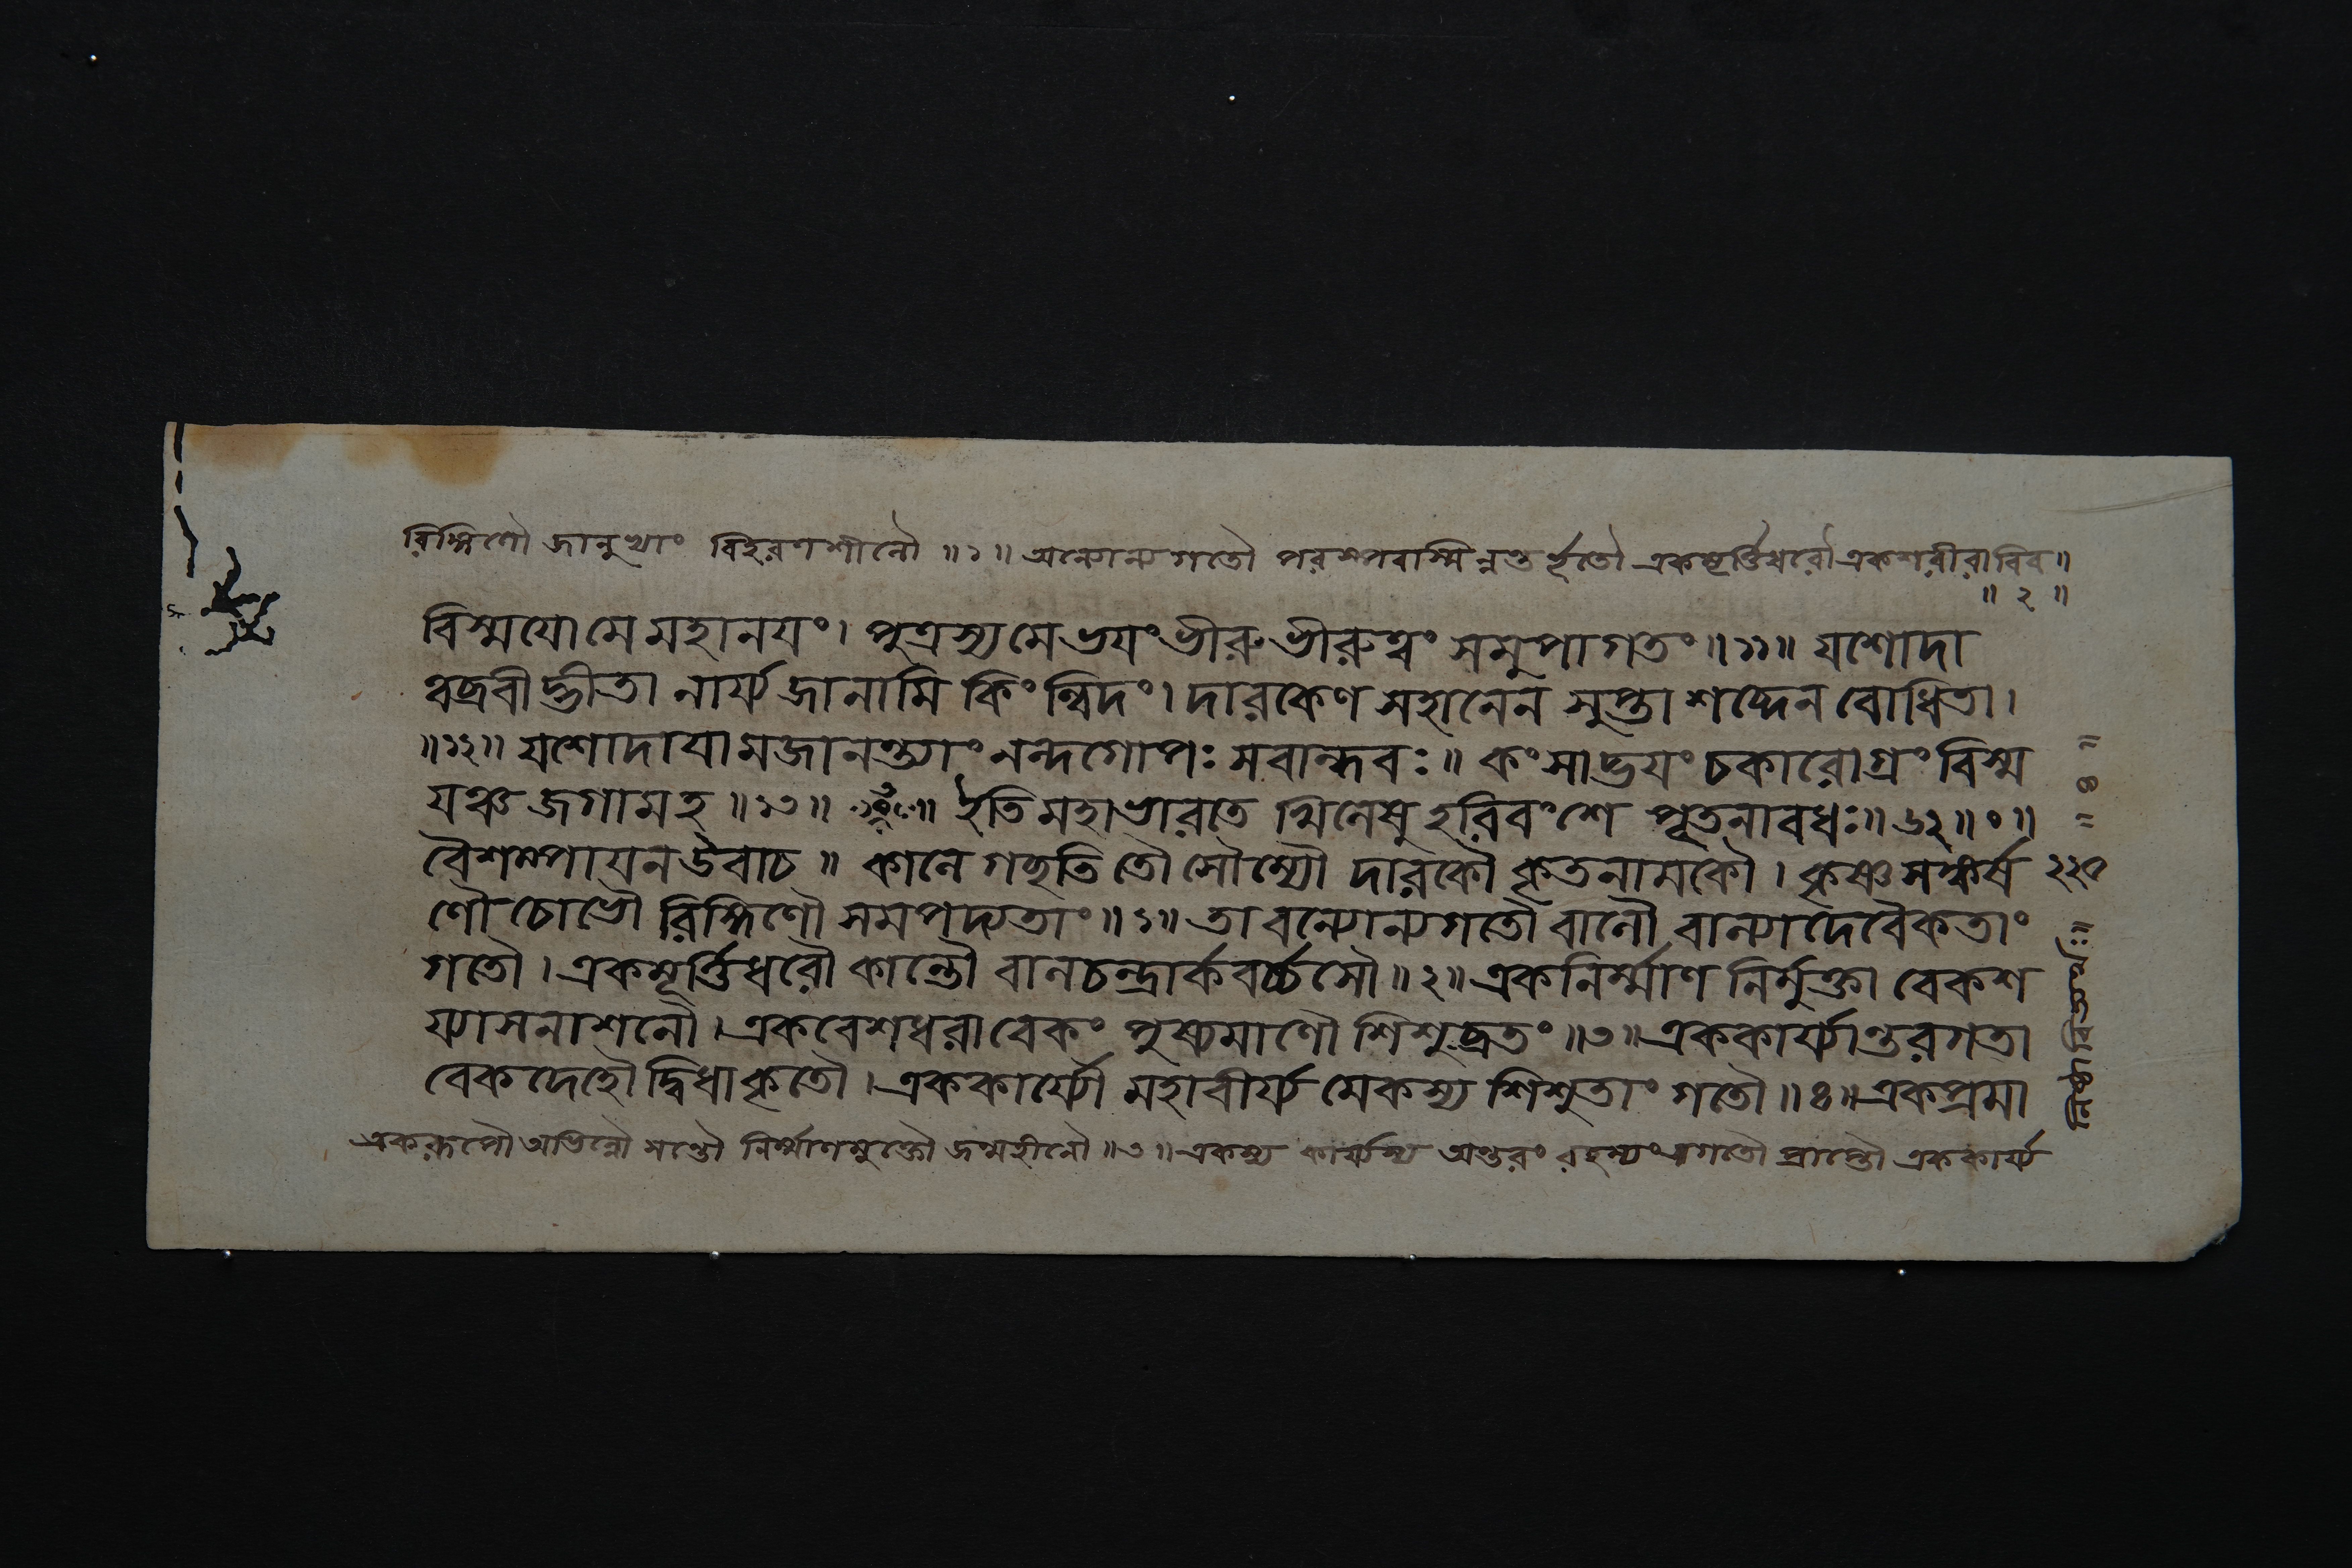 রিঙ্গিণৌ জানুভ্যাং বিহরণশীলৌ ॥১॥ অন্যোন্যগতৌ পরস্পরাস্মিন্নন্তর্হৃতৌ একমূর্ত্তিধরৌ একশরীরাবিব॥
॥ ২ ॥
বিস্ময়ো মে মহানয়ং। পুত্রস্য মে ভয়ং ভীরু ভীরুত্বং সমুপাগতং॥১১॥ যশোদা
ত্বব্রবীদ্ভীতা নার্য্য জানামি কিংন্বিদং। দারকেণ সহানেন সুপ্তা শব্দেন বোধিতা।
॥১২॥ যশোদায়ামজানন্ত্যাং নন্দগোপঃ সবান্ধবঃ॥ কংসাদ্ভয়ং চকারোগ্রং বিস্ম
যঞ্চ জগাম হ॥১৩॥ ইতি মহাভারতে খিলেষু হরিবংশে পূতনাবধঃ॥৬২॥০॥
বৈশম্পায়ন উবাচ॥ কালে গচ্ছতি তৌ সৌম্যৌ দারকৌ কৃতনামকৌ। কৃষ্ণসঙ্কর্ষ
ণৌ চোভৌ রিঙ্গিণৌ সমপদ্যতাং॥১॥ তাবন্যোন্যগতৌ বালৌ বাল্যাদেবৈকতাং
গতৌ। একমূর্ত্তিধরৌ কান্তৌ বালচন্দ্রার্কবর্চ্চসৌ॥২॥ একনির্ম্মাণনির্মুক্তাবেকশ
য্যাসনাশনৌ। একবেশধরাবেকং পুষ্যমাণৌ শিশুব্রতং॥৩॥ এককার্য্যান্তরগতা
বেকদেহৌ দ্বিধাকৃতৌ। এককার্য্যৌ মহাবীর্য্যমেকস্য শিশুতাং গতৌ॥৪॥ একপ্রমা
একরূপৌ অভিন্নৌ সন্তৌ নির্ম্মাণমুক্তৌ জন্মহীনৌ॥৩॥ একস্য কার্য্যস্য অন্তরং রহস্যং গতৌ প্রাপ্তৌ এককার্য্য
২২৫